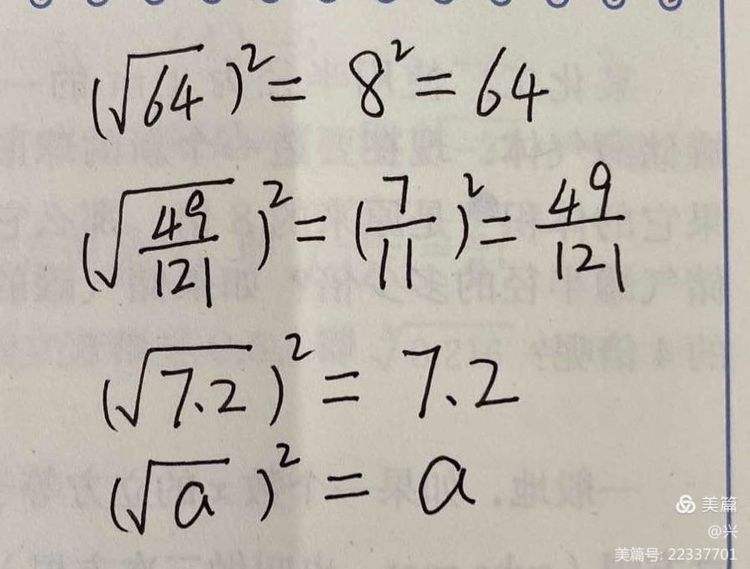 (√64)² = 8² = 64
(√(49/121))² = (7/11)² = 49/121
(√7.2)² = 7.2
(√a)² = a
美篇
@兴
美篇号: 22337701